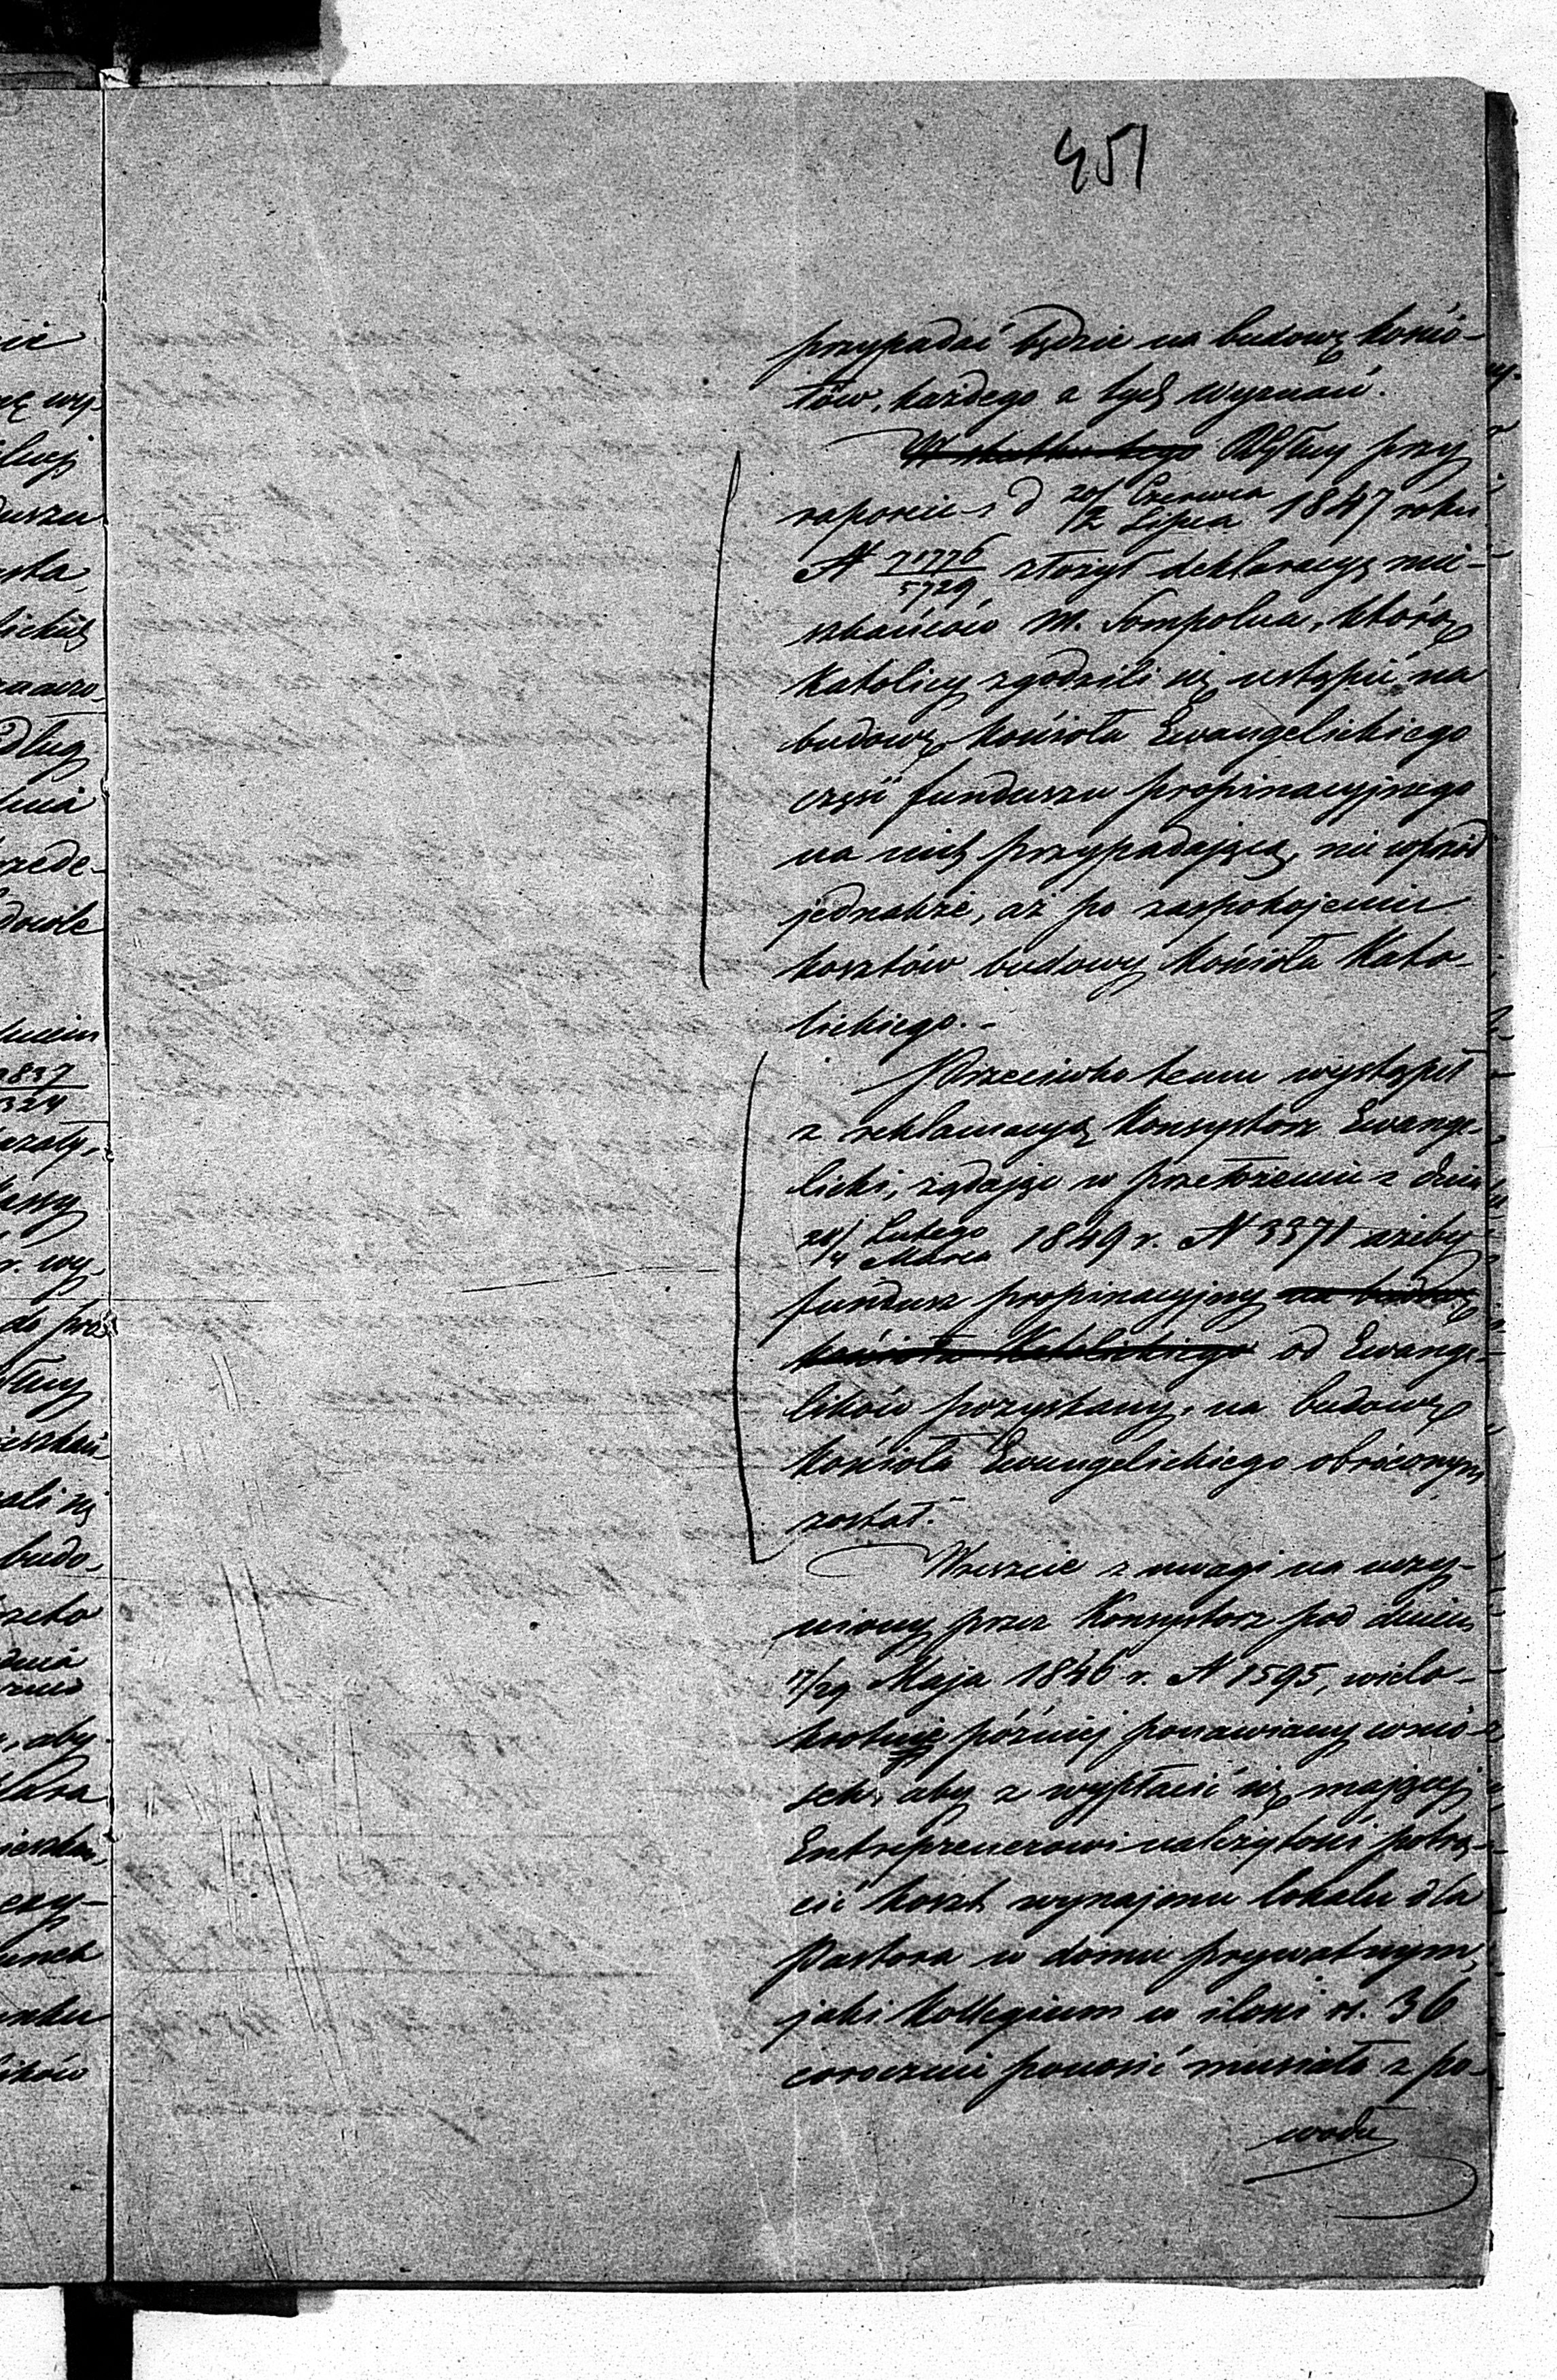 451
przypadać będzie na budowę kościo-
łów, każdego z tych wyznań.
W skutku tego Rząd Gub. przy
raporcie z d 20/2 Czerwca/Lipca 1847 roku
N 71776/5729 złożył deklaracyę mie-
szkańców M. Sompolna, którą
Katolicy zgodzili się ustąpić na
budowę kościoła Ewangelickiego
część funduszu propinacyjnego
na nich przypadającą, nie wprzód
jednakże, aż po zaspokojeniu
kosztów budowy kościoła Kato-
lickiego.-
Przeciwko temu wystąpił
z reklamacyą Konsystorz Ewange-
licki, żądając w przełożeniu z dnia
20/4 Lutego/Marca 1849 r. N 3371 ażeby
fundusz propinacyjny na budowę
kościoła Katolickiego od Ewange-
lików pozyskany, na budowę
kościoła Ewangelickiego obróconym
został.
Wreszcie z uwagi na uczy-
niony przez Konsystorz pod dniem
17/29 Maja 1846 r. N 1595, wielo-
krotnie później ponawiany wnio-
sek, aby z wypłacić się mającej
Entreprenerowi należytości potrą-
cić koszt wynajmu lokalu dla
Pastora w domu prywatnym,
jaki Kollegium w ilości rs. 36
corocznie ponosić musiało z po-
wodu